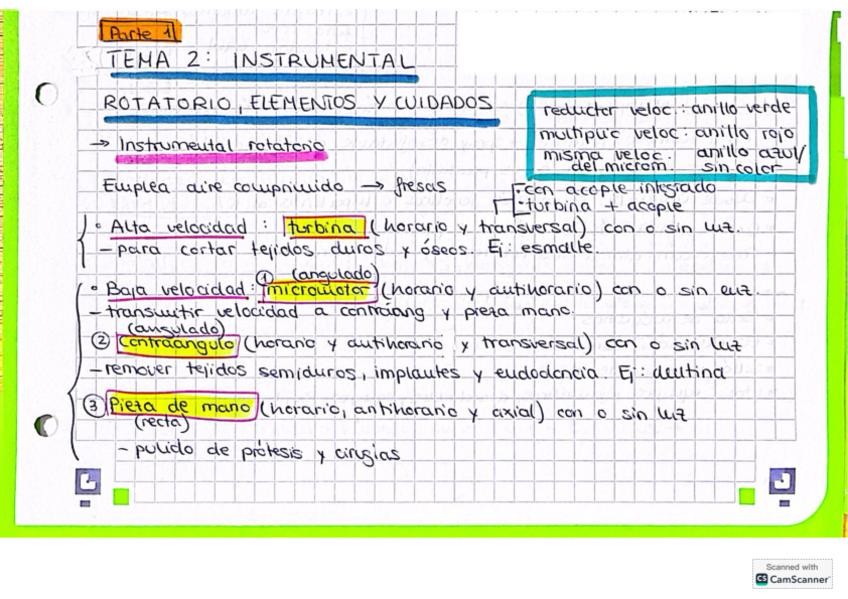 Parte 1
TEMA 2: INSTRUMENTAL
ROTATORIO, ELEMENTOS Y CUIDADOS
reductor veloc.: anillo verde
multiplic veloc: anillo rojo
misma veloc. anillo azul/
del microm. sin color
→ Instrumental rotatorio
Emplea aire comprimido → fresas
· con acople integrado
· turbina + acople
• Alta velocidad : turbina (horario y transversal) con o sin luz.
- para cortar tejidos duros y óseos. Ej: esmalte.
① (angulado)
• Baja velocidad: micromotor (horario y antihorario) con o sin luz.
- transmitir velocidad a contraang y pieza mano.
(angulado)
② Contraangulo (horario y antihorario y transversal) con o sin luz
- remover tejidos semiduros, implantes y endodoncia. Ej: dentina
③ Pieza de mano (horario, antihorario y axial) con o sin luz
(recta)
- pulido de prótesis y cirugias
Scanned with
CS CamScanner